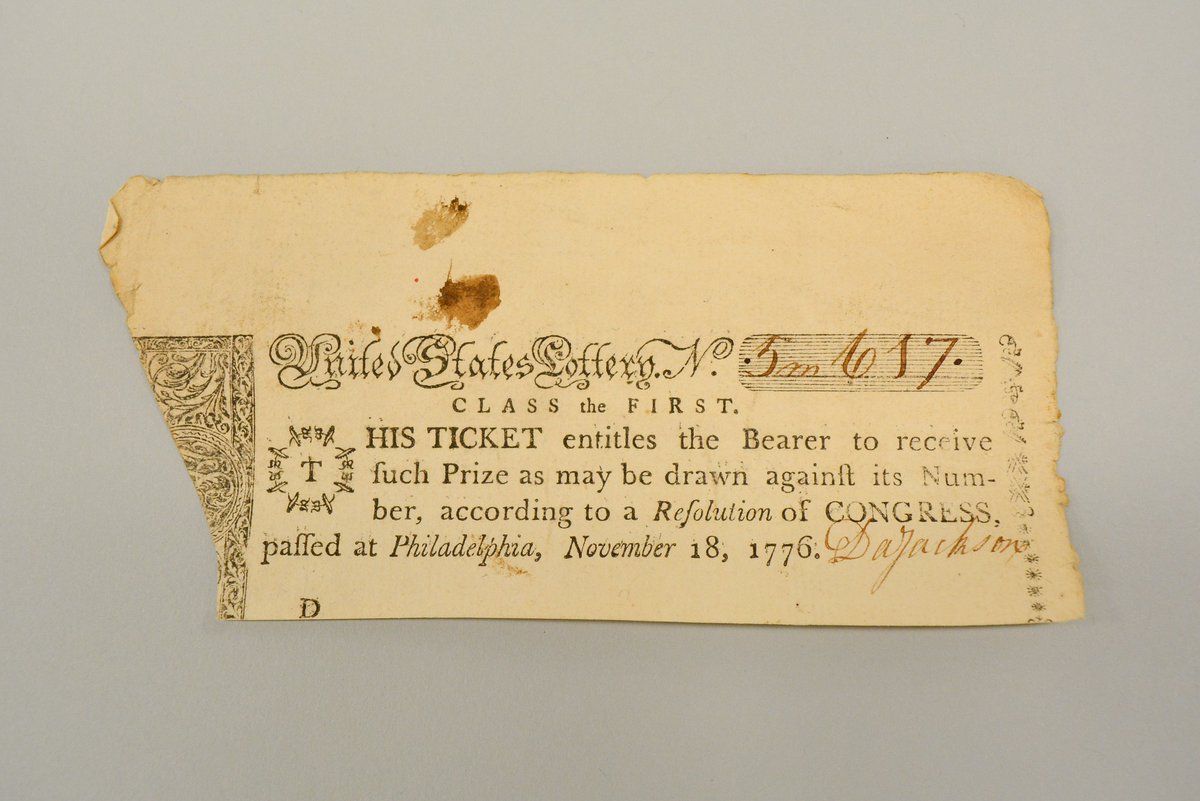 United States Lottery. No. 5m 617.
CLASS the FIRST.
THIS TICKET entitles the Bearer to receive
ſuch Prize as may be drawn againſt its Num-
ber, according to a Reſolution of CONGRESS,
paſſed at Philadelphia, November 18, 1776. Da Jackson
D